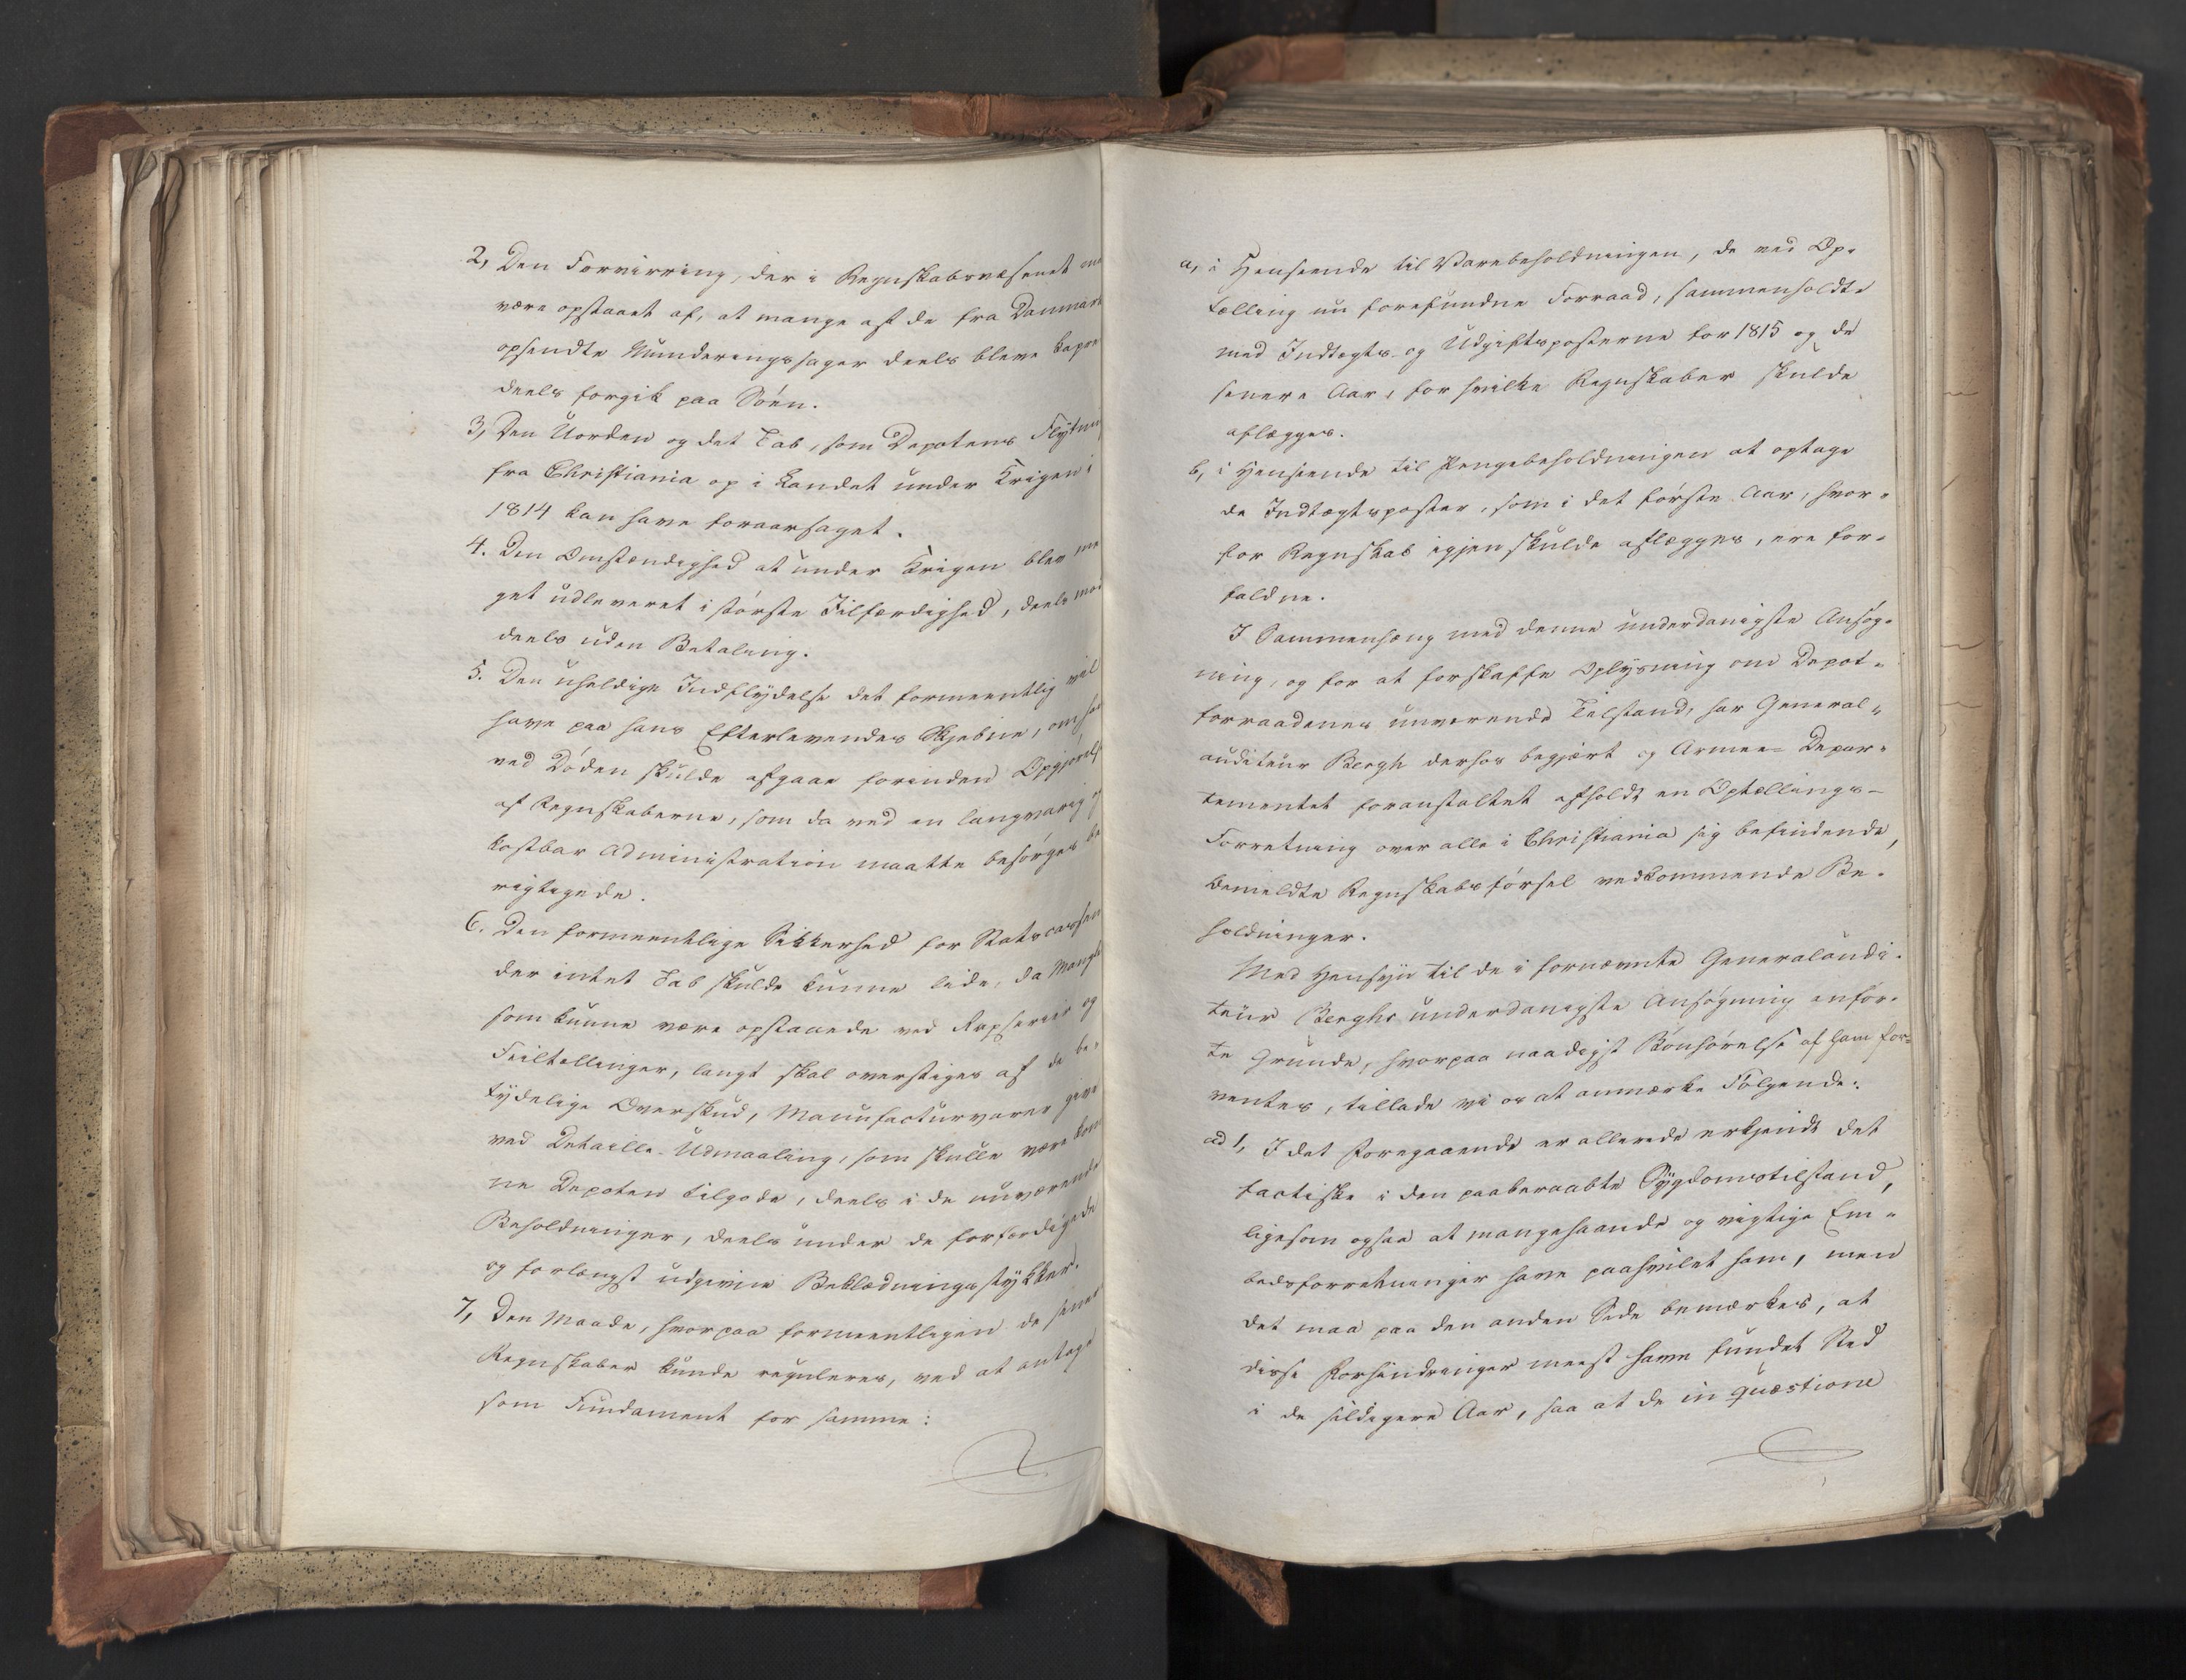 2, Den Forvirring, der i Regnskabsvæsenet maa
være opstaaet af, at mange af de fra Danmark
opsendte Munderingssager deels bleve kapre
deels forgik paa Söen.
3, Den Uorden og det Tab, som Depotens Flytning
fra Christiania op i Landet under Krigen i
1814 kan have foraarsaget.
4. Den Omstændighed at under Krigen blev me
get udleveret i störste Ilfærdighed, deels mod
deels uden Betaling.
5. Den uheldige Indflydelse det formeentlig vil
have paa hans Efterlevendes Skjebne, om han
ved Döden skulde afgaae forinden Opgjörelse
af Regnskaberne, som da ved en langvarig og
kostbar Administration maatte besörges be
rigtigede.
6. Den formeentlige Sikkerhed for Statscassen
der intet Tab skulde kunne lide, da Mangler
som kunne være opstaaede ved Rapserier og
Feiltællinger, langt skal overstiges af de be-
tydelige Overskud, Manufacturvarer give
ved Detaille-Udmaaling, som skulle være kom
ne Depoten tilgode, deels i de nuværende
Beholdninger, deels under de forfærdigede
og forlængst udgivne Beklædningsstykker.
7, Den Maade, hvorpaa formeentligen de senere
Regnskaber kunde reguleres, ved at antage
som Fundament for samme:
a, i Henseende til Varebeholdningen, de ved Op-
tælling nu forefundne Forraad, sammenholdte
med Indtægts- og Udgiftsposterne for 1815 og de
senere Aar, for hvilke Regnskaber skulde
aflægges.
b, i Henseende til Pengebeholdningen at optage
de Indtægtsposter, som i det förste Aar, hvor-
for Regnskab igjen skulde aflægges, ere for-
faldne.
I Sammenhæng med denne underdanigste Ansög-
ning, og for at forskaffe Oplysning om Depot-
forraadenes nuværende Tilstand, har General-
auditeur Bergh derhos begjært og Armee-Depar-
tementet foranstaltet afholdt en Optællings-
Forretning over alle i Christiania sig befindende,
bemeldte Regnskabsförsel vedkommende Be-
holdninger.
Med Hensyn til de i fornævnte Generalaudi-
teur Berghs underdanigste Ansögning anför-
te Grunde, hvorpaa naadigst Bönhörelse af ham for-
ventes, tillade vi os at anmærke Fölgende:
ad 1, I det Foregaaende er allerede erkjendt det
factiske i den paaberaabte Sygdomstilstand,
ligesom ogsaa at mangehaande og vigtige Em-
bedsforretninger have paahvilet ham, men
det maa paa den anden Side bemærkes, at
disse Forhindringer meest have fundet Sted
i de sildigere Aar, saa at de in quæstione